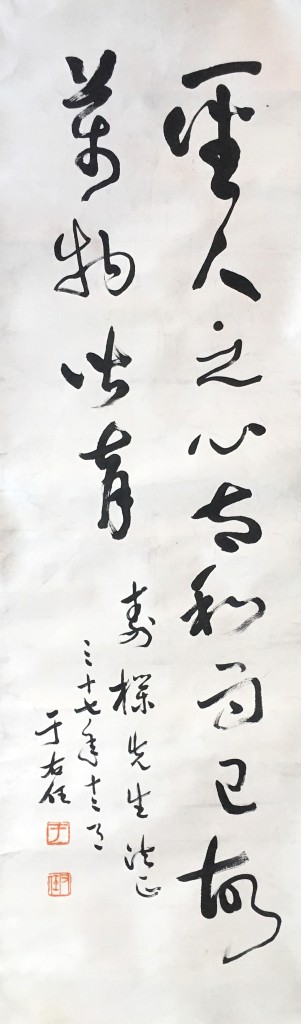 聖人之心和而已故
萬物皆育
壽先生法正
三十七年十二月
于右任